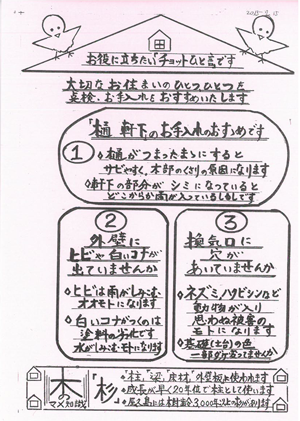 お役に立ちたい チョットひと言です
大切なお住まいのひとつひとつを
点検、お手入れをおすすめいたします
「樋 軒下のお手入れのおすすめです
①
◇樋がつまったままにすると
サビやすく、木部のくさりの原因になります
◇軒下の部分がシミになっていると
どこからか雨が入っているしるしです
②
外壁に
ヒビや白いコナが
出ていませんか
◇ヒビは雨がしみこむ
オオモトになります
◇白いコナがつくのは
塗料の劣化です
水がしみこむモトになります
③
換気口に
穴が
あいていませんか
◇ネズミ、ハクビシンなど
動物が入り
思わぬ被害の
モトになります
◇基礎(土台)の色
木の
マメ知識
「杉」
・柱、梁、床材、外壁板に使われます
・成長が早く20年位で柱として使います